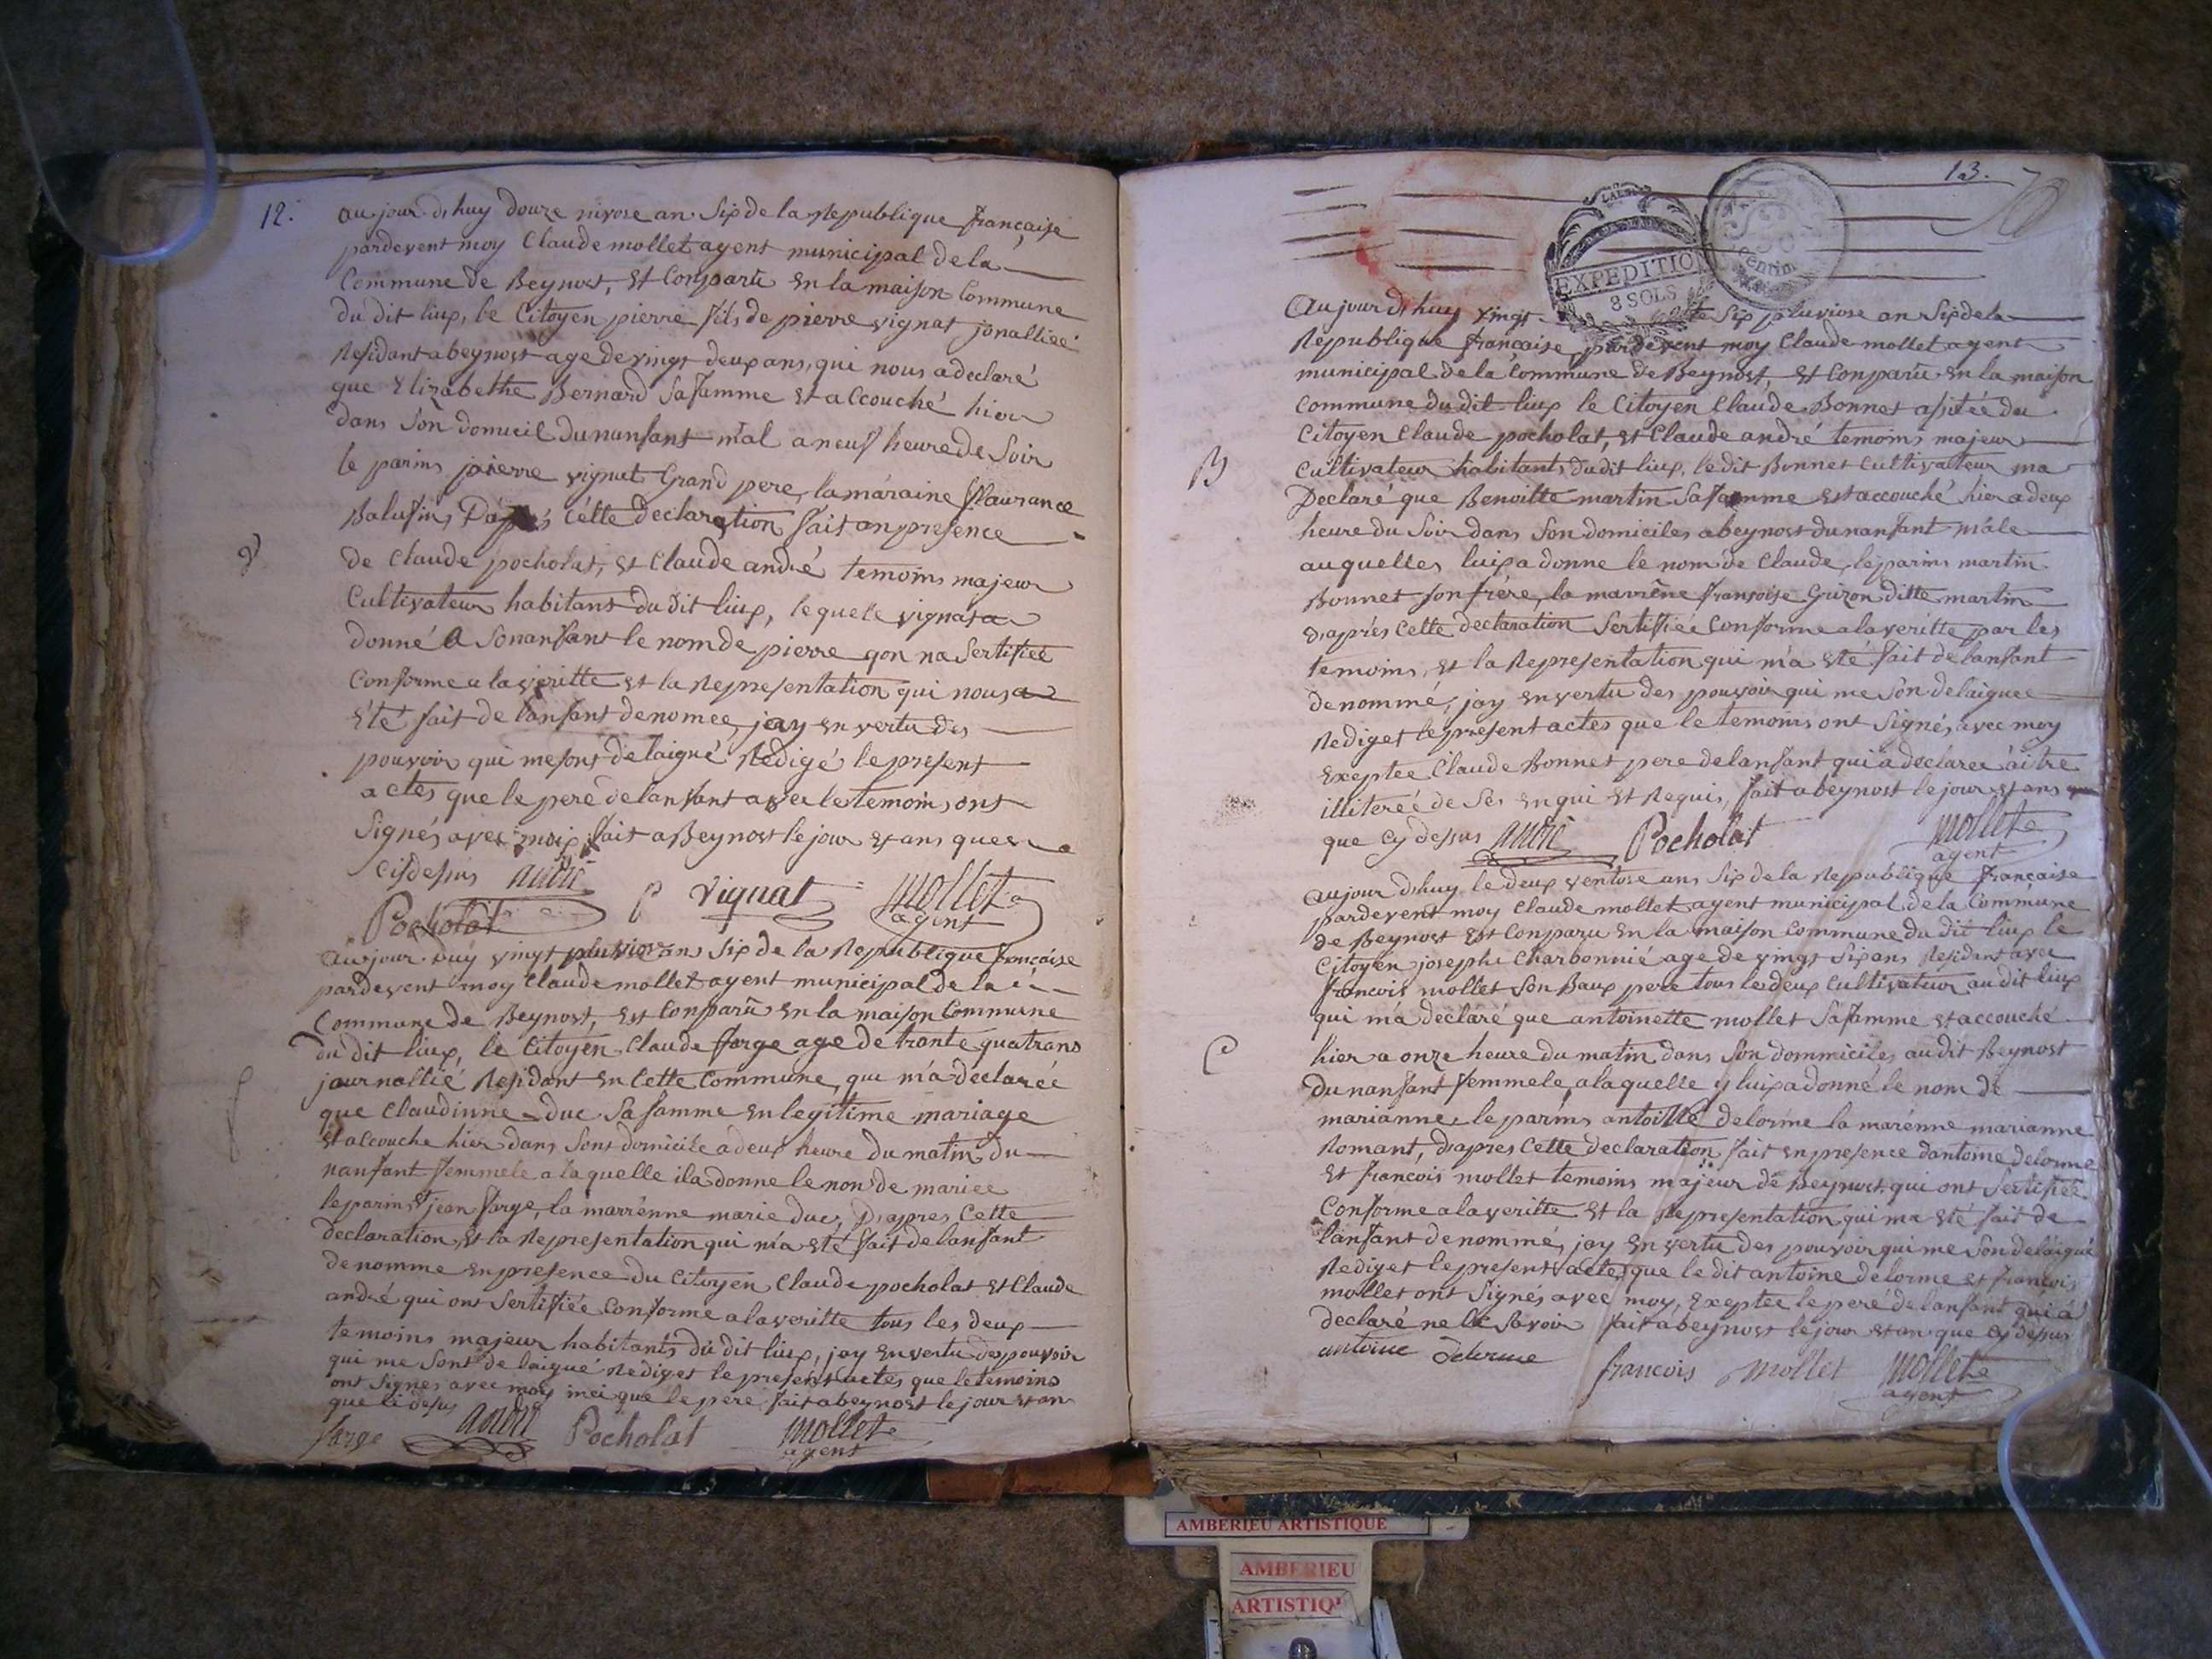 12.
au jour dhuy douze nivose an Six de la Republique française
pardevent moy Claude mollet agent municipal de la
Commune de Beynost, Et Conparu En la maison Commune
du dit liux, le Citoyen pierre fils de pierre vignat jonalliee
Residant a beynost age de vingt deux ans, qui nous a declaré
que Elizabethe Bernard Sa famme Et accouché hier
dans Son domicil dunanfant mâl a neuf heure de Soir
le parins pierre vignat Grand pere, la maraine Flaurance
Balufins, Daprés Cette declaration fait an presence
V
de Claude pocholat, Et Claude andré temoins majeur
Cultivateur habitant du dit liux, le quele vignat a
donné a Son anfant le nom de pierre qon na Sertifiee
Conforme a la veritte Et la Representation qui nous a
Eté fait de lanfant denomee, jay En vertu des
pouvoir qui me sont delaigné Redigé le present
actes que le pere de lanfant avec le temoins ont
Signés avec moix fait a Beynost le jour Et ans que
Cidesus andré
Pocholat P vignat mollet
agent
Au jour duy vingt pluviose an Six de la Republique française
pardevent moy Claude mollet agent municipal de la
Commune de Beynost, Est Conparu En la maison Commune
du dit liux, le Citoyen Claude farge age de trante quatr ans
f
journallié Residant En Cette Commune, qui m'a declarée
que Claudinne duc Sa famme En legitime mariage
Et accouche hier dans Sont domicile a deux heure du matin du
nanfant femmele a laquelle il a donne le non de mariee
le parins Et jean farge, la marrénne marie duc, Dapres Cette
declaration Et la Representation qui m'a Eté fait de lanfant
denomme En presence du Citoyen Claude pocholat Et Claude
andré qui ont Sertifiée Conforme a la veritte tous les deux
temoins majeur habitants du dit liux, jay En vertu des pouvoir
qui me Sont delaigué Rediget le present actes que le temoins
ont Signes avec moy insi que le pere fait a beynost le jour Et an
que Ci desus
farge andré Pocholat mollet
agent
13.
LAEN
EXPEDITION
8 SOLS
Centim
Au jour dhuy vingt Six pluviose an Six de la
Republique française, pardevent moy Claude mollet agent
municipal de la Commune de Beynost, Et Conparu En la maison
Commune du dit liux le Citoyen Claude Bonnet asitée du
Citoyen Claude pocholat, Et Claude andré temoins majeur
B
Cultivateur habitants du dit liux, le dit Bonnet Cultivateur ma
Declaré que Benoitte martin Sa famme Est accouché hier a deux
heure du Soir dans Son domiciles a beynost dunanfant mâle
auquelles luix a donne le nom de Claude, le parins martin
Bonnet Son frére, la marréne franroise Guzon ditte martin
Daprés Cette declaration Sertifiée Conforme a la veritte par les
temoins, Et la Representation qui m'a Eté fait de lanfant
denommé, jay En vertu des pouvoir qui me Son delaiguee
Rediget le present actes que le temoins ont Signés avec moy
Exeptee Claude Bonnet pere de lanfant qui a declaree aitre
illiterée de Ses En qui Et Requis, fait a beynost le jour Et ans
que Cy desus andré Pocholat mollet
agent
au jour dhuy le deux ventose ans Six de la Republique française
pardevent moy Claude mollet agent municipal de la Commune
de Beynost Est Conparu En la maison Commune du dit liux le
Citoyen josephe Charbonnié age de vingt Six ans Residant avec
francois mollet Son Baux pere tous le deux Cultivateur au dit liux
qui ma declaré que antoinette mollet Sa famme Et accouché
C
hier a onze heure du matin dans Son dommiciles au dit Beynost
Dunanfant femmele a laquelle y luix a donné le nom de
marianne le parins antoine delorme la marénne marianne
Romant, dapres Cette declaration fait En presence dantoine delorme
Et francois mollet temoins majeur de Beynost qui ont Sertifiée
Conforme a la veritte Et la Representation qui ma Eté fait de
lanfant denommé, jay En vertu des pouvoir qui me Son delaigué
Rediget le present actes que le dit antoine delorme Et francois
mollet ont Signés avec moy, Exeptee le peré de lanfant qui a
declaré ne le Savoir fait a beynost le jour Et an que Cy desus
antoine delorme francois mollet mollet
agent
AMBERIEU ARTISTIQUE
AMBERIEU
ARTISTIQ